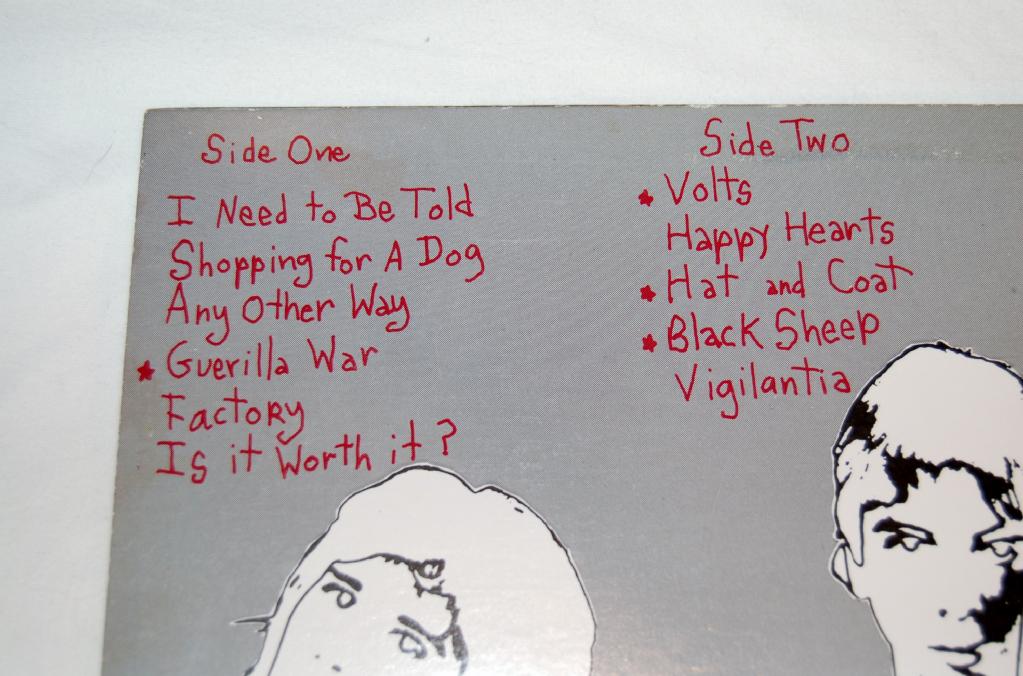 Side One
I Need to Be Told
Shopping for A Dog
Any Other Way
* Guerilla War
Factory
Is it Worth it?
Side Two
* Volts
Happy Hearts
* Hat and Coat
* Black Sheep
Vigilantia